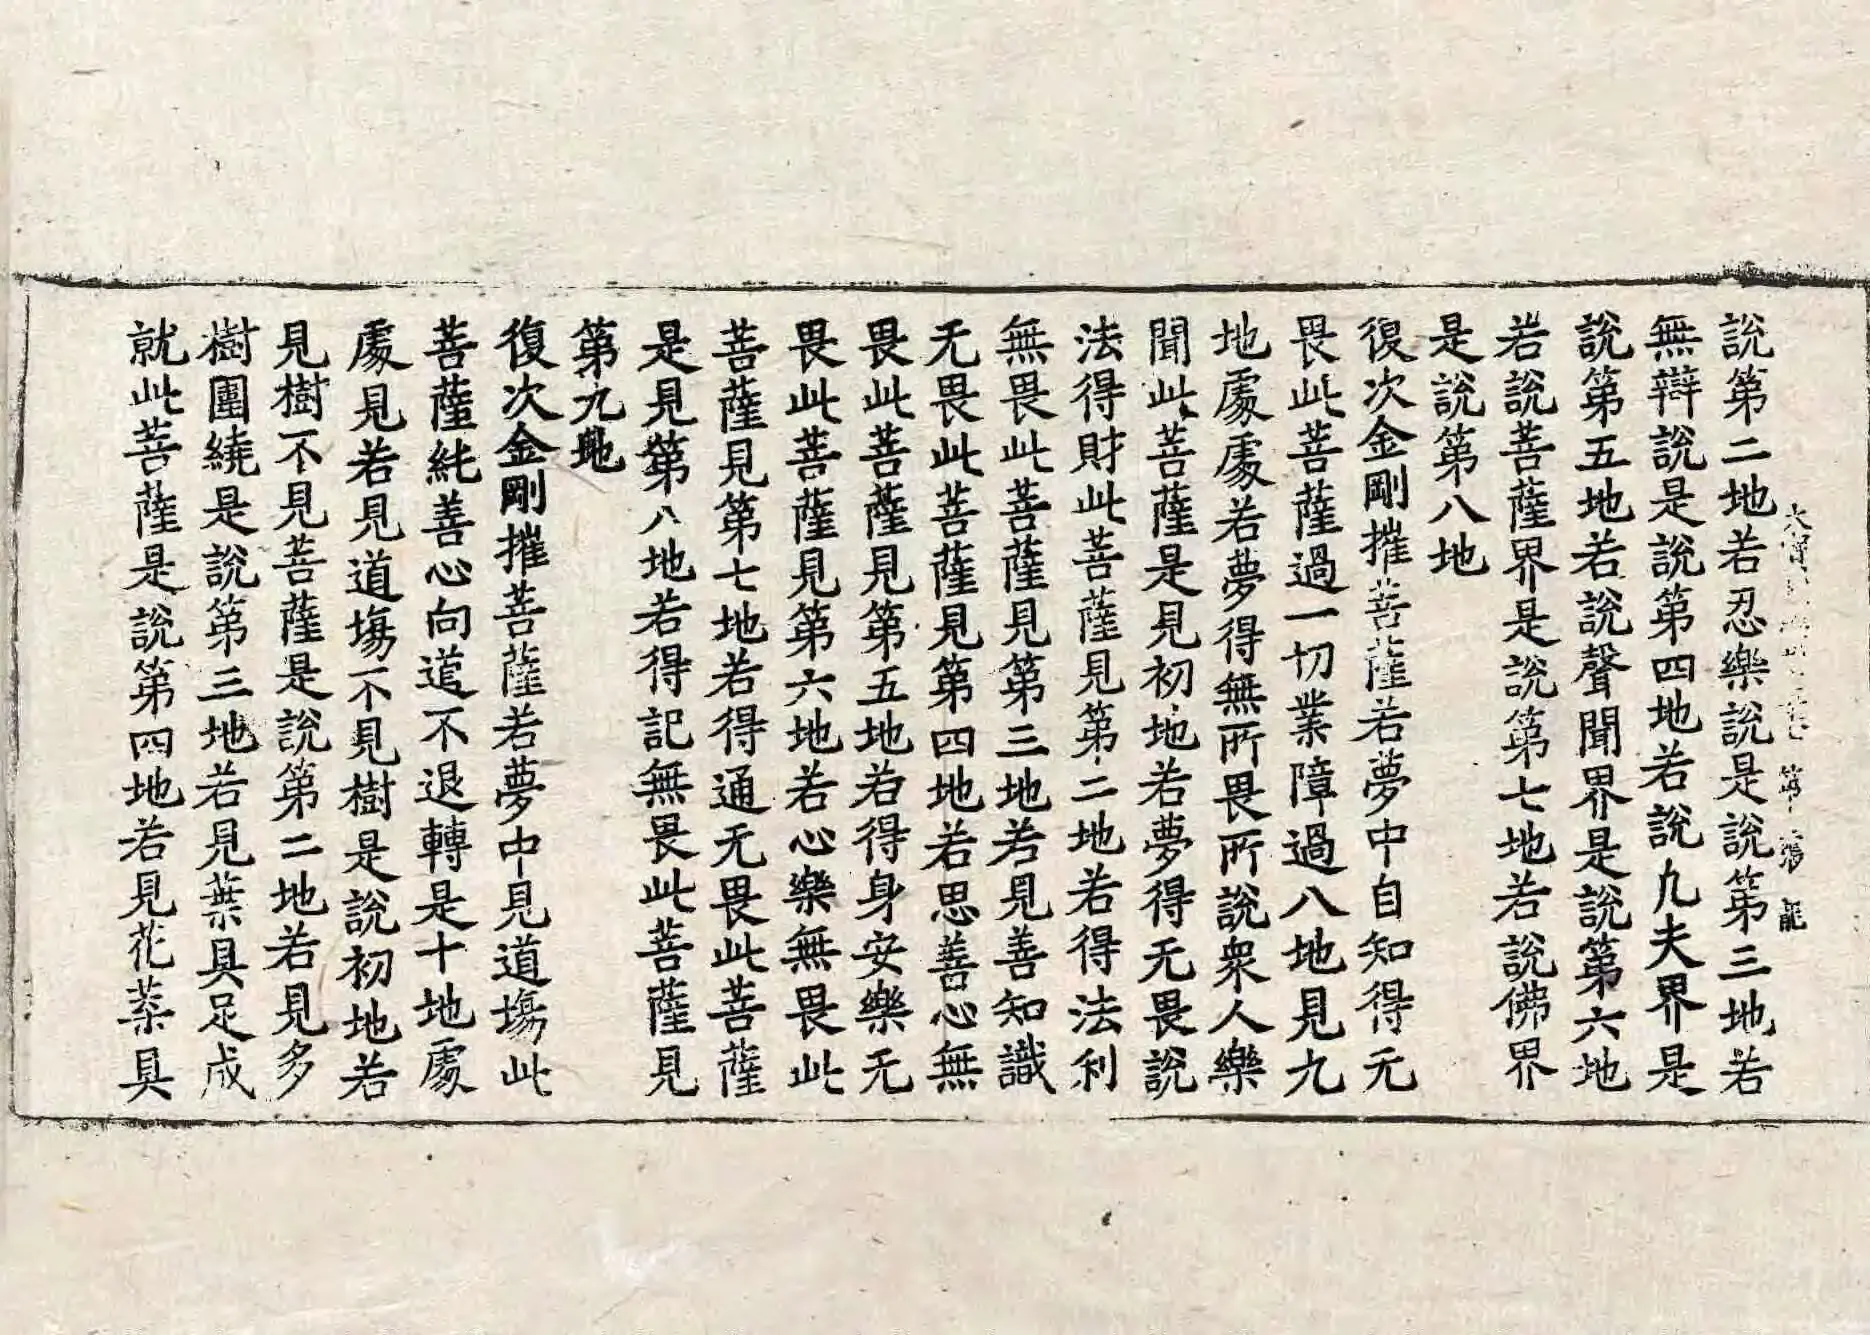 說第二地若忍樂說是說第三地若
無辯說是說第四地若說凡夫界是
說第五地若說聲聞界是說第六地
若說菩薩界是說第七地若說佛界
是說第八地
復次金剛摧菩薩若夢中自知得无
畏此菩薩過一切業障過八地見九
地處處若夢得無所畏所說衆人樂
聞此菩薩是見初地若夢得无畏說
法得財此菩薩見第二地若得法利
無畏此菩薩見第三地若見善知識
无畏此菩薩見第四地若思善心無
畏此菩薩見第五地若得身安樂无
畏此菩薩見第六地若心樂無畏此
菩薩見第七地若得通无畏此菩薩
是見第八地若得記無畏此菩薩見
第九地
復次金剛摧菩薩若夢中見道塲此
菩薩純善心向道不退轉是十地處
處見若見道塲不見樹是說初地若
見樹不見菩薩是說第二地若見多
樹圍繞是說第三地若見葉具足成
就此菩薩是說第四地若見花菓具
大寶 第 龍